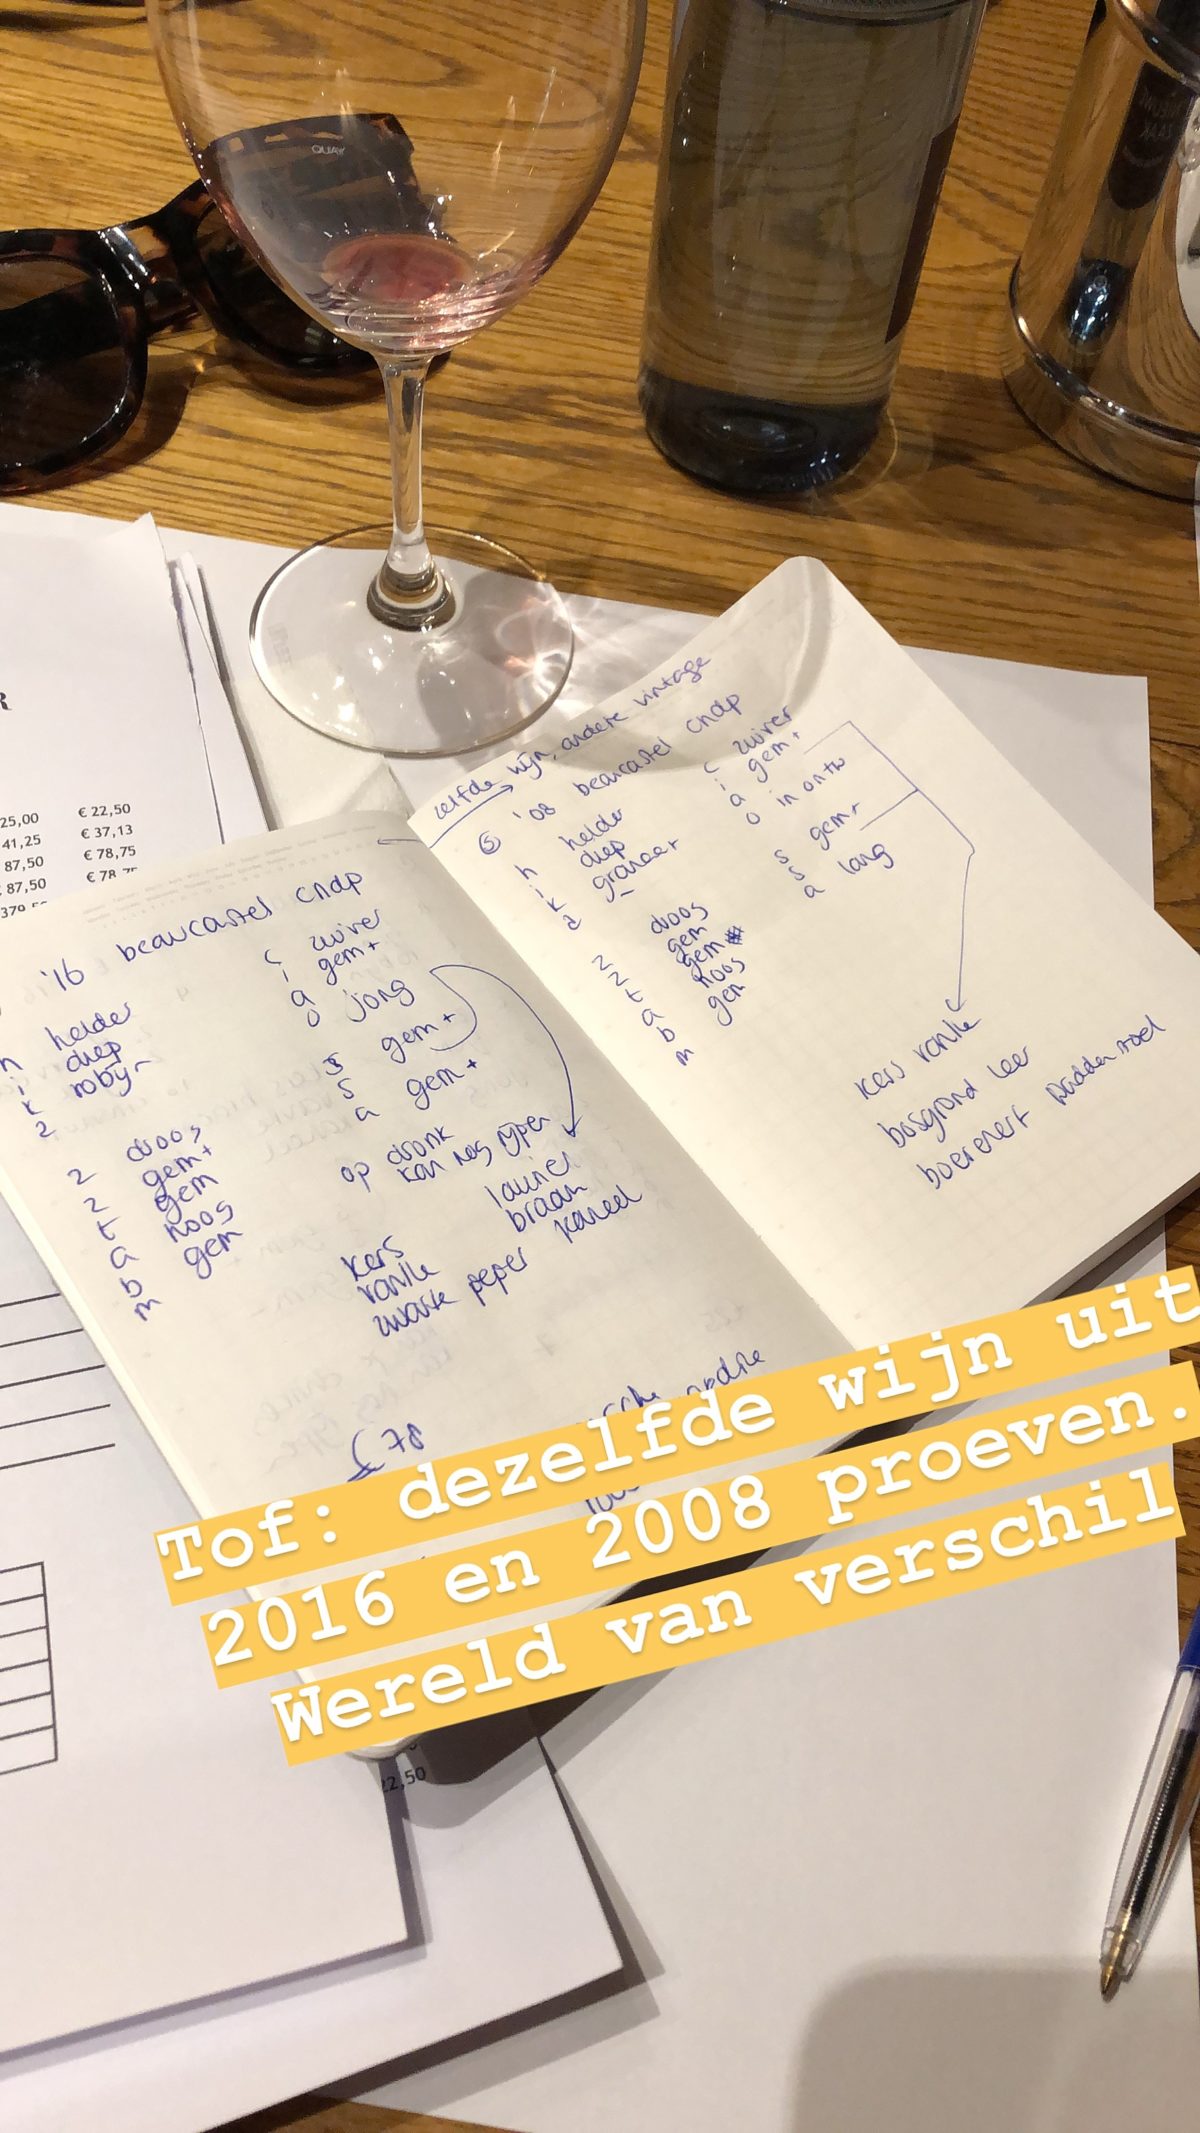 QUAY
25,00 € 22,50
41,25 € 37,13
87,50 € 78,75
87,50
'16 beaucastel cndp
h helder
i diep
k robijn
z droog
z gem+
t gem
a hoog
b gem
m
c zuiver
i gem+
a jong
o
s gem+
s
a gem+
op dronk
kan nog rijpen
laurier
braam
kaneel
kers
vanille
zwarte peper
78
zelfde wijn, andere vintage
5 '08 beaucastel cndp
h helder
i diep
k granaat
z droog
z gem
t gem
a hoog
b gem
m
c zuiver
i gem+
a
o in ontw
s gem+
s
a lang
kers vanille
bosgrond leer
boerenerf paddenstoel
Tof: dezelfde wijn uit
2016 en 2008 proeven.
Wereld van verschil
22,50